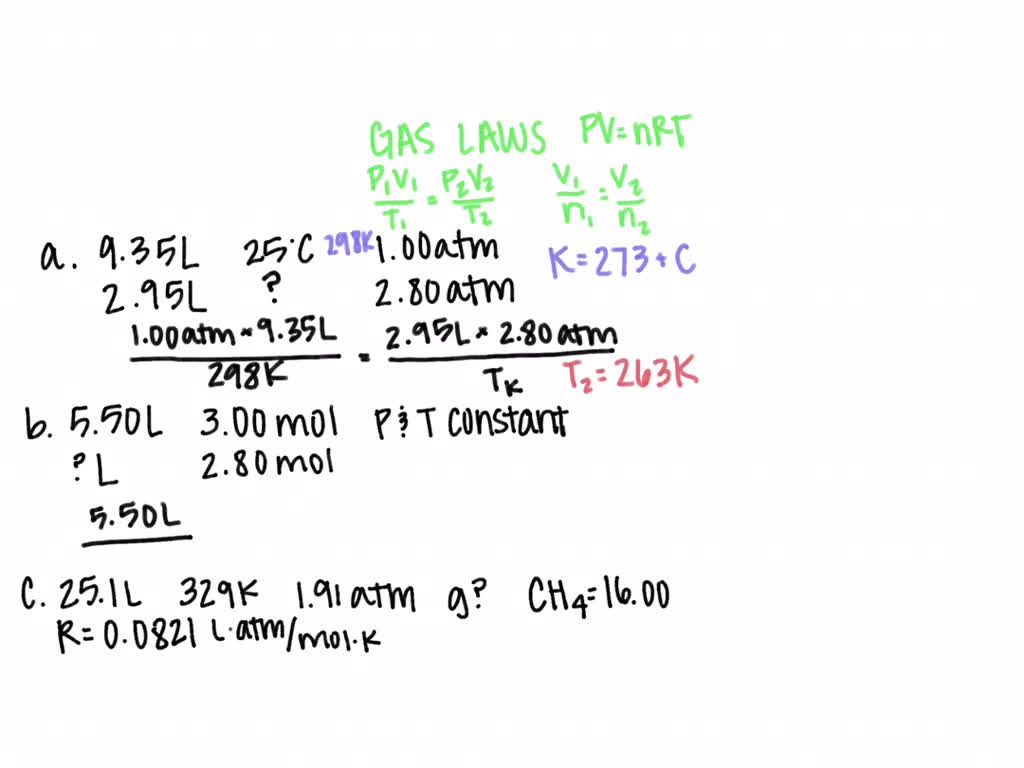 GAS LAWS PV=nRT
P₁V₁/T₁ = P₂V₂/T₂ V₁/n₁ = V₂/n₂
a. 9.35L 25°C 298K 1.00atm K=273+C
2.95L ? 2.80atm
1.00atm * 9.35L / 298K = 2.95L * 2.80atm / TK T₂=263K
b. 5.50L 3.00mol P & T constant
? L 2.80mol
5.50L
C. 25.1L 329K 1.91atm g? CH₄=16.00
R=0.0821 L·atm/mol·K